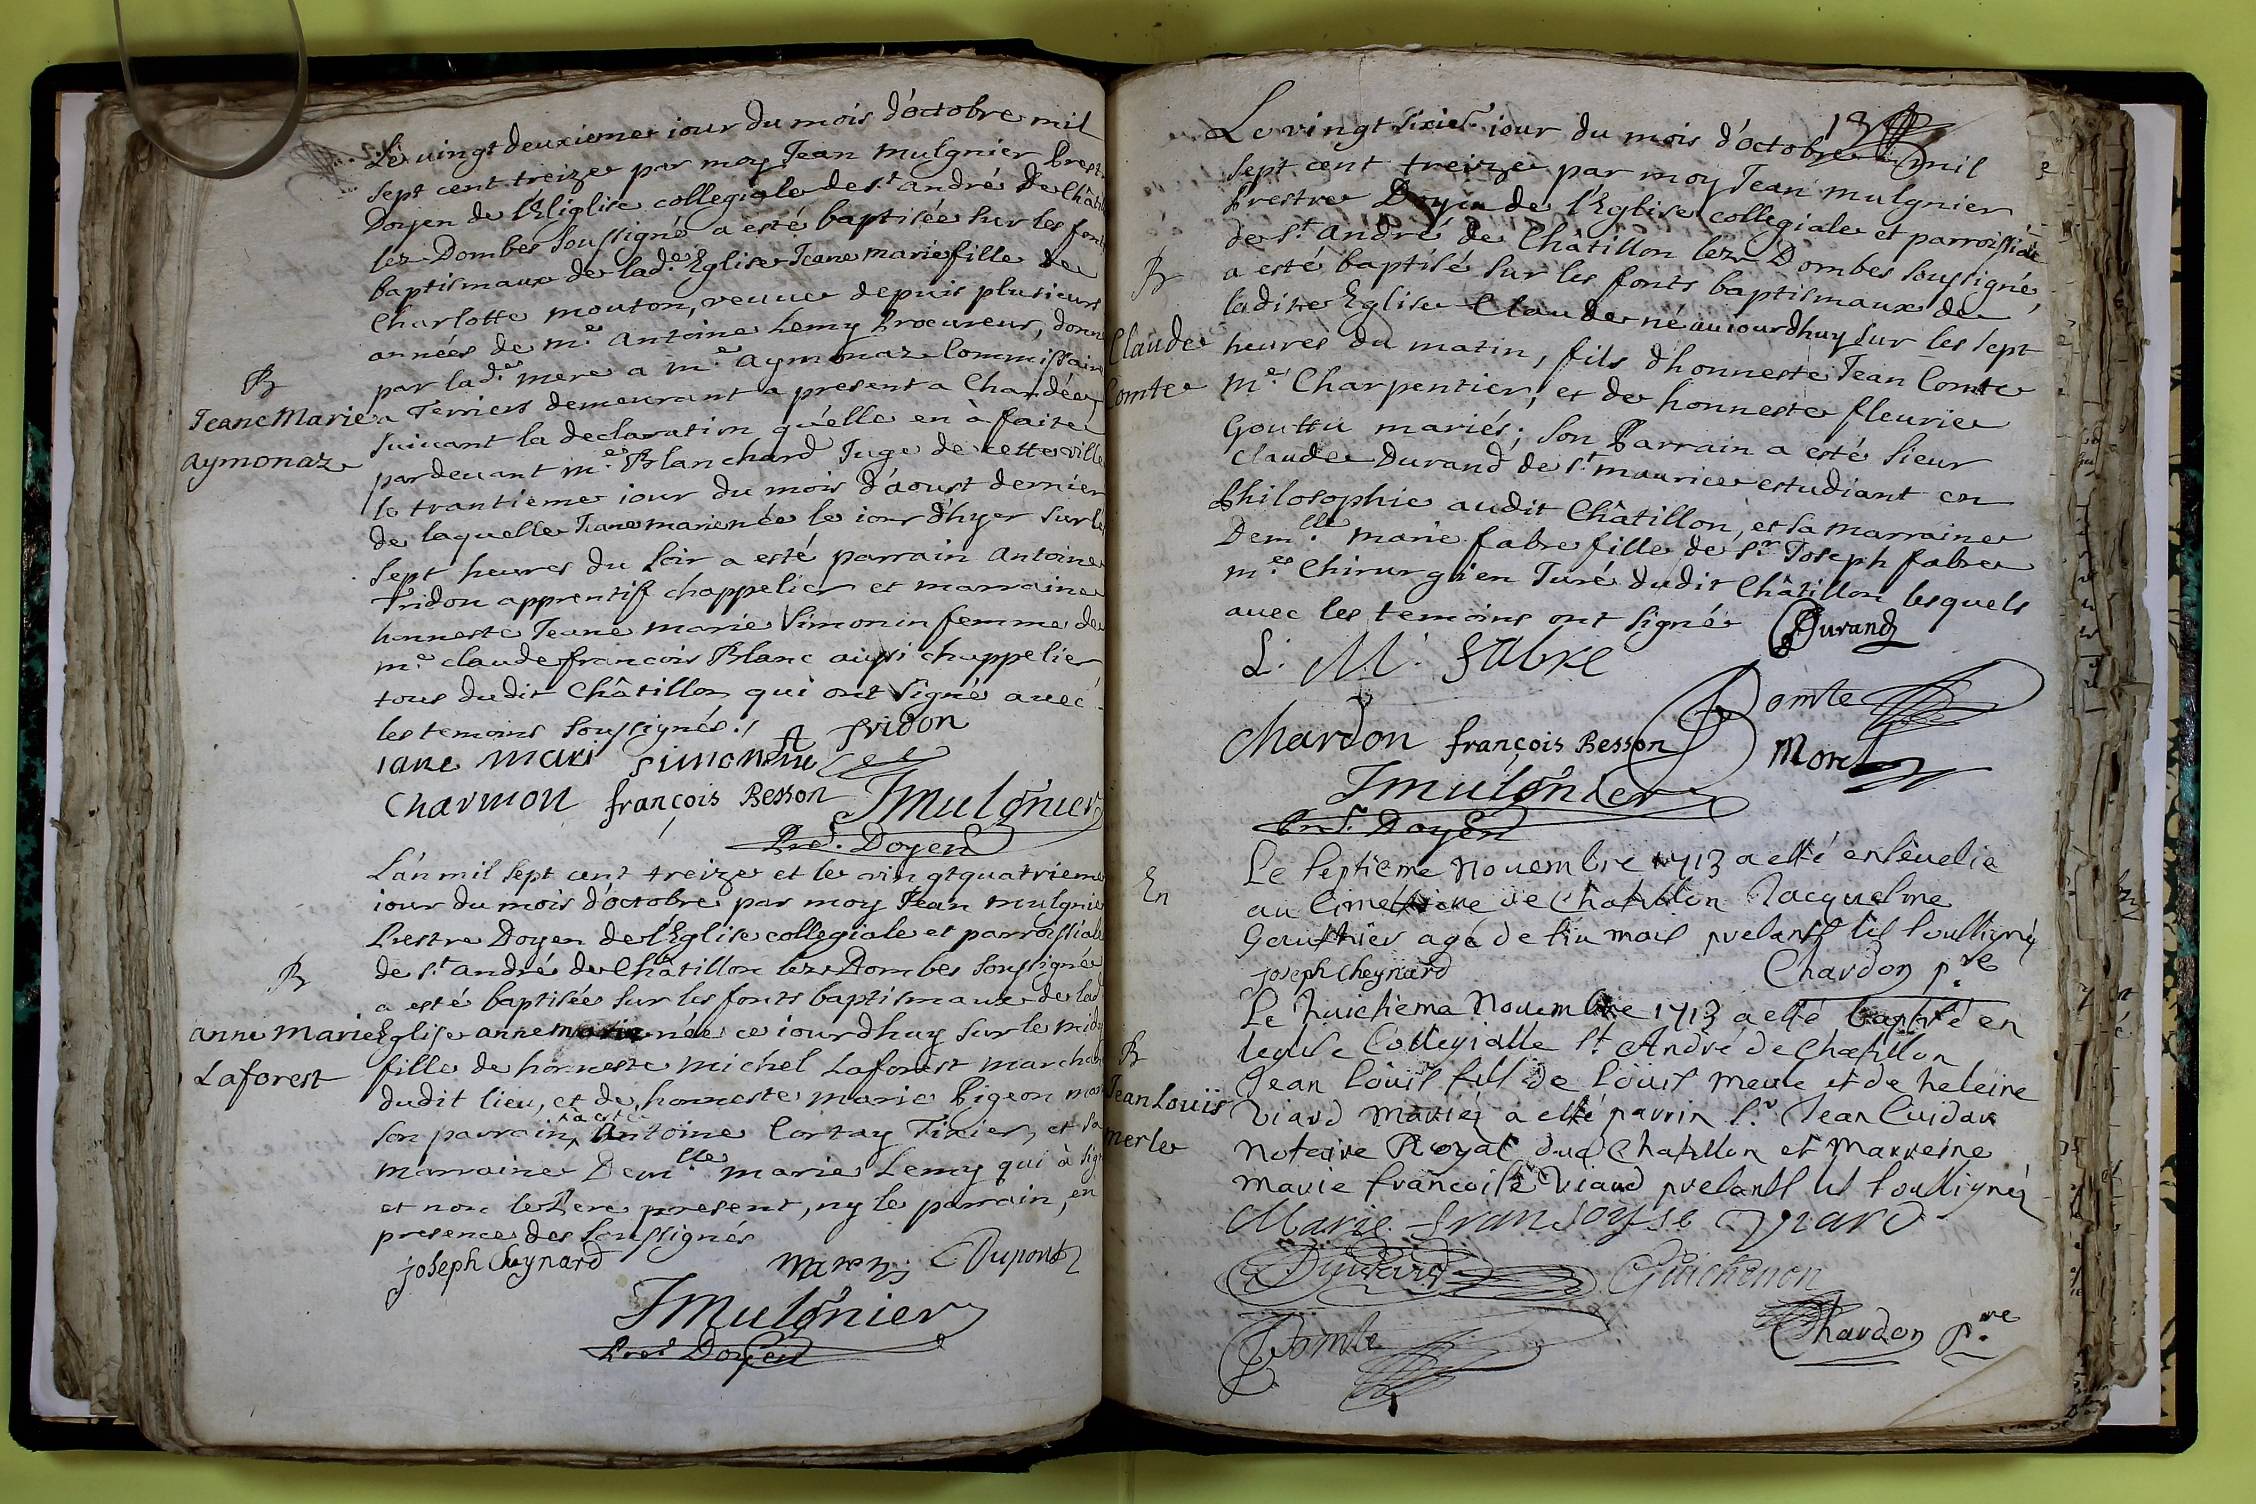 Le vingt deuxieme iour du mois d'octobre mil
sept cent treize par moy Jean mulgnier Prest
Doyen de l'Eliglise collegiale de St andré de Châti
lez Dombes soussigné a esté baptisée sur les font
baptismaux de lade. Eglise Jeane marie fille de
Charlotte mouton, veuue depuis plusieurs
années de me. Antoine Lemy Procureur, donn
par lade. mere a me. aymonaz Commissaire
B
Jeane Marie
aymonaz
a Terriers demeurant a present a Chandée,
suiuant la declaration quélle en à faite
pardeuant me. Blanchard Juge de cette ville
le trantieme iour du mois d'aoust dernier
de laquelle Jeane marie née le iour d'hyer sur le
sept heures du soir a esté parrain Antoine
Tridon apprentif chappelier et marraine
honneste Jeane marie Simonin femme de
me. claude francois Blanc aussi chappelier
tous dudit Châtillon qui ont signé auec
les temoins soussignés.
A Tridon
iane mari simonin
Charmon françois Besson JMulgnier
Pre. Doyen
L'an mil sept cent treize et le vingtquatrieme
iour du mois d'octobre par moy Jean mulgnie
Prestre Doyen de l'Eglise collegiale et parroissiale
B
de St andré de Châtillon lez Dombes soussigné
a esté baptisée sur les fonts baptismaux de lad
anne Marie
Laforest
Eglise anne marie née ce iourdhuy sur le midy
fille de honneste michel Laforest marchan
dudit lieu, et de honneste marie Pigeon mar
son parrain a esté Antoine Cortay Tixier, et sa
marraine Demlle. marie Lemy qui à sign
et non le Pere present, ny le parrain, en
presence des soussignés
joseph Cheynard Dupont
JMulgnier
Pre. Doyen
13
Le vingt sixie iour du mois d'octobre mil
sept cent treize par moy Jean mulgnier
Prestre Doyen de l'Eglise collegiale et parroissiale
de St andré de Châtillon lez Dombes soussigné,
B
a esté baptisé sur les fonts baptismaux de
ladite Eglise Claude né auiourdhuy sur les sept
Claude
Comte
heures du matin, fils dhonneste Jean Comte
me. Charpentier, et de honneste fleurie
Gouttu mariés; son Parrain a esté sieur
Claude Durand de St maurice estudiant en
Philosophie audit Châtillon, et sa marraine
Demlle. marie fabre fille de Sr Joseph fabre
me. Chirurgien Juré dudit Châtillon lesquels
auec les temoins ont signé Durand
L. M. fabre
Comte
Chardon françois Besson Morel
JMulgnier
Pre. Doyen
Le septieme Nouembre 1713 a esté enseuelie
En
au Cimetiere de Chatillon Jacqueline
Gouthier agé de six mois presants les soussignéz
joseph Cheynard Chardon pre
Le huictieme Nouembre 1713 a esté baptisé en
leglise Collegialle St André de Chatillon
B
Jean Louis
merle
Jean Louis fils de Louis merle et de heleine
Viard mariéz a esté parrin Sr. Jean Cuidar
notaire Royal dud Chatillon et marreine
marie francoise Viard presants les soussignéz
Marie franсoyse Viard
Guichenon
Comte Chardon pre